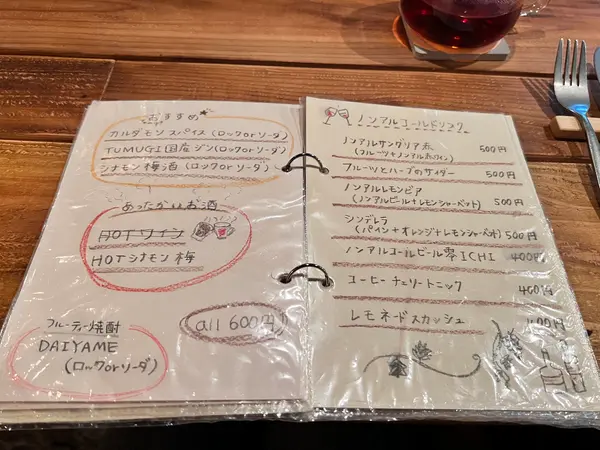 おすすめ
カルダモンスパイス(ロックorソーダ)
TUMUGI国産ジン(ロックorソーダ)
シナモン梅酒(ロックorソーダ)
あったかいお酒
HOTワイン
HOTシナモン梅
all 600円
フルーティー焼酎
DAIYAME
(ロックorソーダ)
ノンアルコールドリンク
ノンアルサングリア赤 500円
(フルーツ+ノンアル赤ワイン)
フルーツとハーブのサイダー 500円
ノンアルレモンビア 500円
(ノンアルビール+レモンシャーベット)
シンデレラ
(パイン+オレンジ+レモンシャーベット) 500円
ノンアルコールビール零ICHI 400円
コーヒーチェリートニック 400円
レモネードスカッシュ 400円